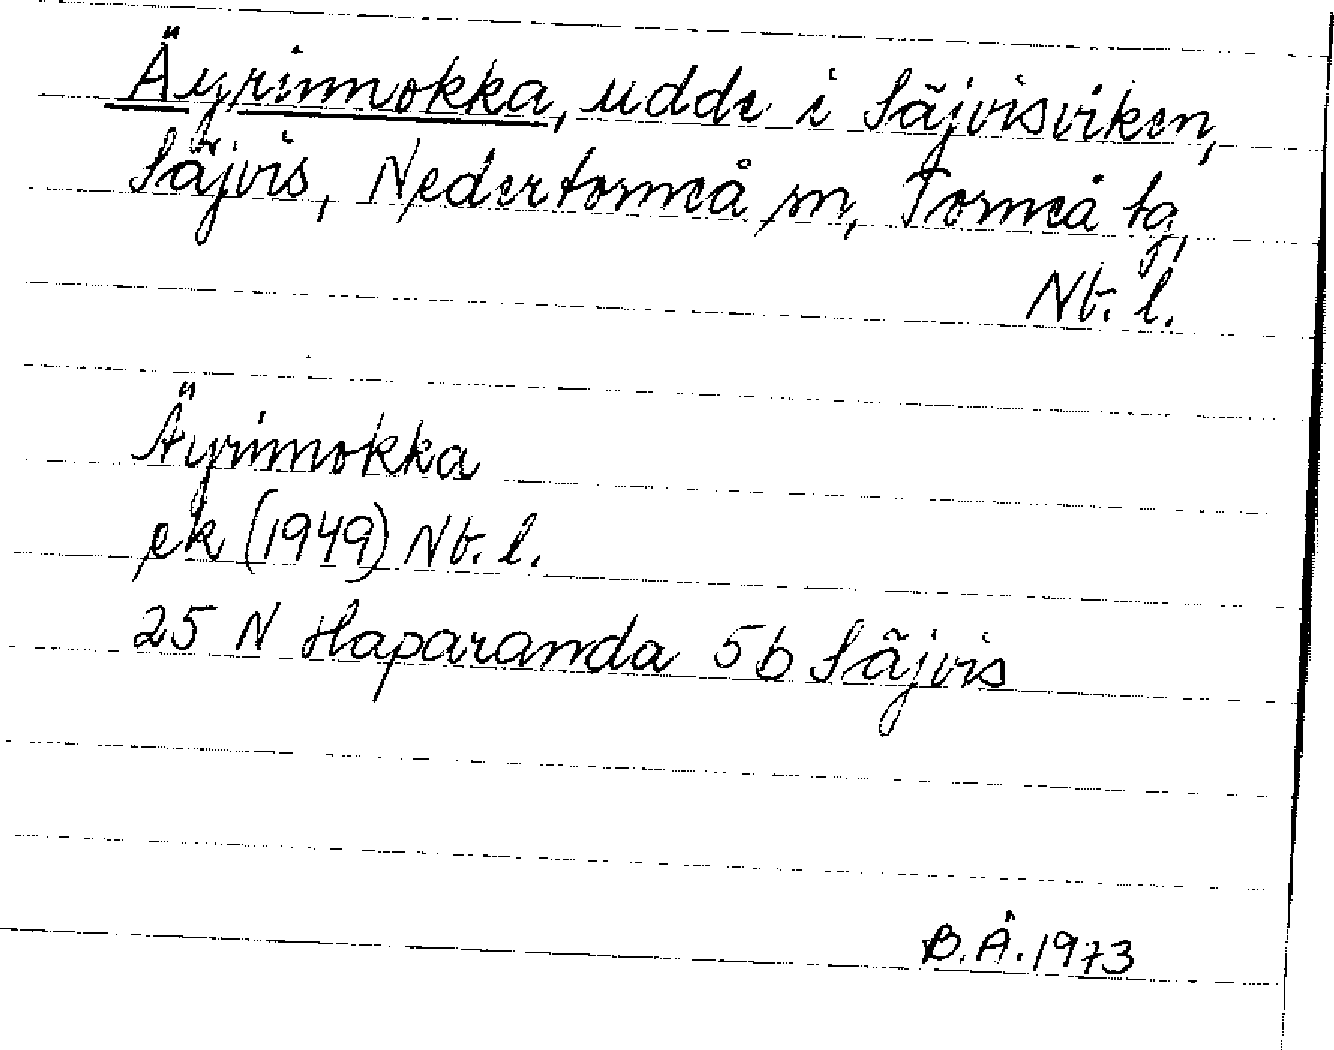 Äyrinnokka, udde i Säjvisviken,
Säjvis, Nedertorneå sn, Torneå tg,
Nb. l.
Äyrinnokka
ek (1949) Nb. l.
25 N Haparanda 5b Säjvis
B.Å. 1973